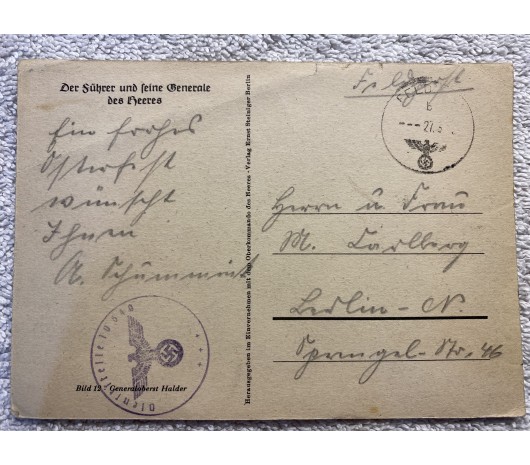 Der Führer und seine Generale
des Heeres
Ein frohes
Osterfest
wünscht
Ihnen
A.
Bild 12 - Generaloberst Halder
Herausgegeben im Einvernehmen mit dem Oberkommando des Heeres - Verlag Ernst Steiniger Berlin
Feldpost
b
--- 27.
Herrn u. Frau
M. Carlberg
Berlin - N.
Sprengel-Str. 46